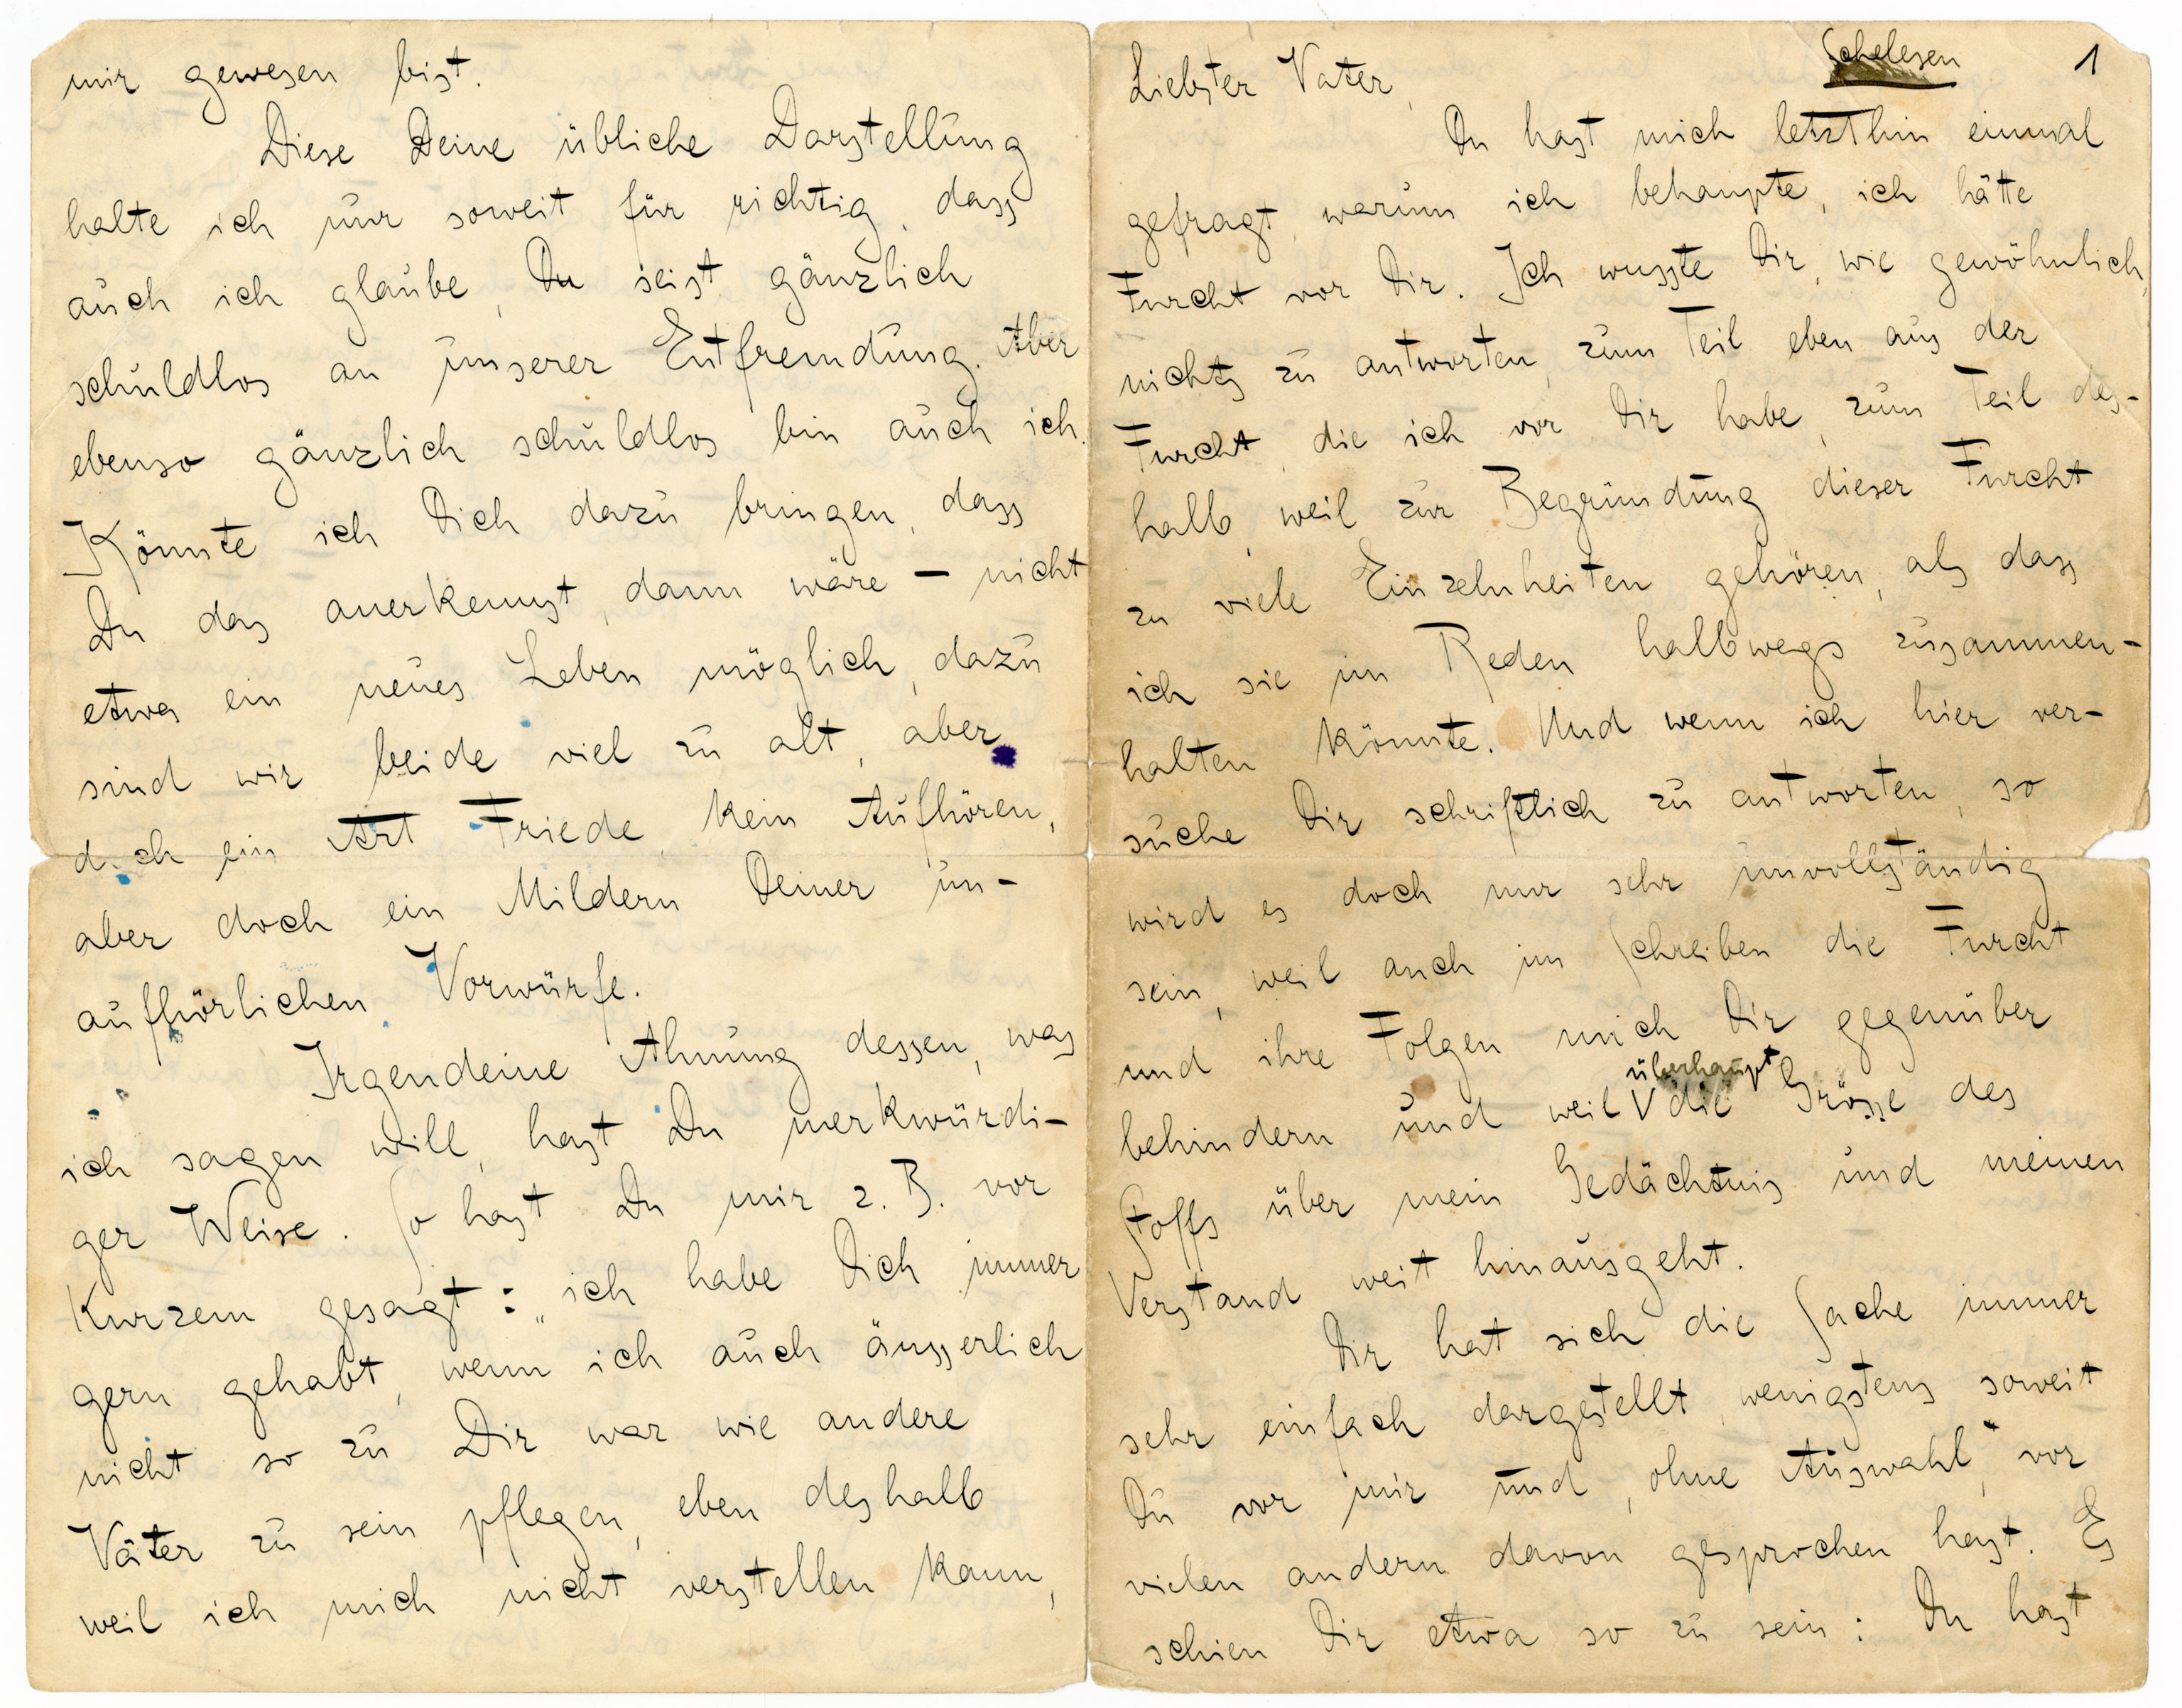 Schelesen 1
Liebster Vater,
Du hast mich letzthin einmal
gefragt, warum ich behaupte, ich hätte
Furcht vor Dir. Ich wusste Dir, wie gewöhnlich,
nichts zu antworten, zum Teil eben aus der
Furcht, die ich vor Dir habe, zum Teil des-
halb, weil zur Begründung dieser Furcht
zu viele Einzelnheiten gehören, als dass
ich sie im Reden halbwegs zusammen-
halten könnte. Und wenn ich hier ver-
suche Dir schriftlich zu antworten, so
wird es doch nur sehr unvollständig
sein, weil auch im Schreiben die Furcht
und ihre Folgen mich Dir gegenüber
überhaupt
behindern und weil die Grösse des
Stoffs über mein Gedächtnis und meinen
Verstand weit hinausgeht.
Dir hat sich die Sache immer
sehr einfach dargestellt, wenigstens soweit
Du vor mir und, ohne Auswahl" vor
vielen andern davon gesprochen hast. Es
schien Dir etwa so zu sein: Du hast
mir gewesen bist.
Diese Deine übliche Darstellung
halte ich nur soweit für richtig, dass
auch ich glaube, Du seist gänzlich
schuldlos an unserer Entfremdung. Aber
ebenso gänzlich schuldlos bin auch ich.
Könnte ich Dich dazu bringen, dass
Du das anerkennst, dann wäre – nicht
etwa ein neues Leben möglich, dazu
sind wir beide viel zu alt, aber
doch ein Art Friede, kein Aufhören,
aber doch ein Mildern Deiner un-
aufhörlichen Vorwürfe.
Irgendeine Ahnung dessen, was
ich sagen will, hast Du merkwürdi-
ger Weise. So hast Du mir z. B. vor
Kurzem gesagt: „ich habe Dich immer
gern gehabt, wenn ich auch äusserlich
nicht so zu Dir war wie andere
Väter zu sein pflegen, eben deshalb
weil ich mich nicht verstellen kann,